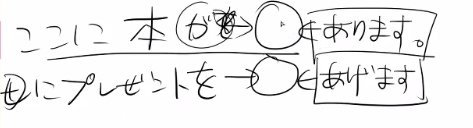 ここに本が→○←あります。
にプレゼントを→○←あげます